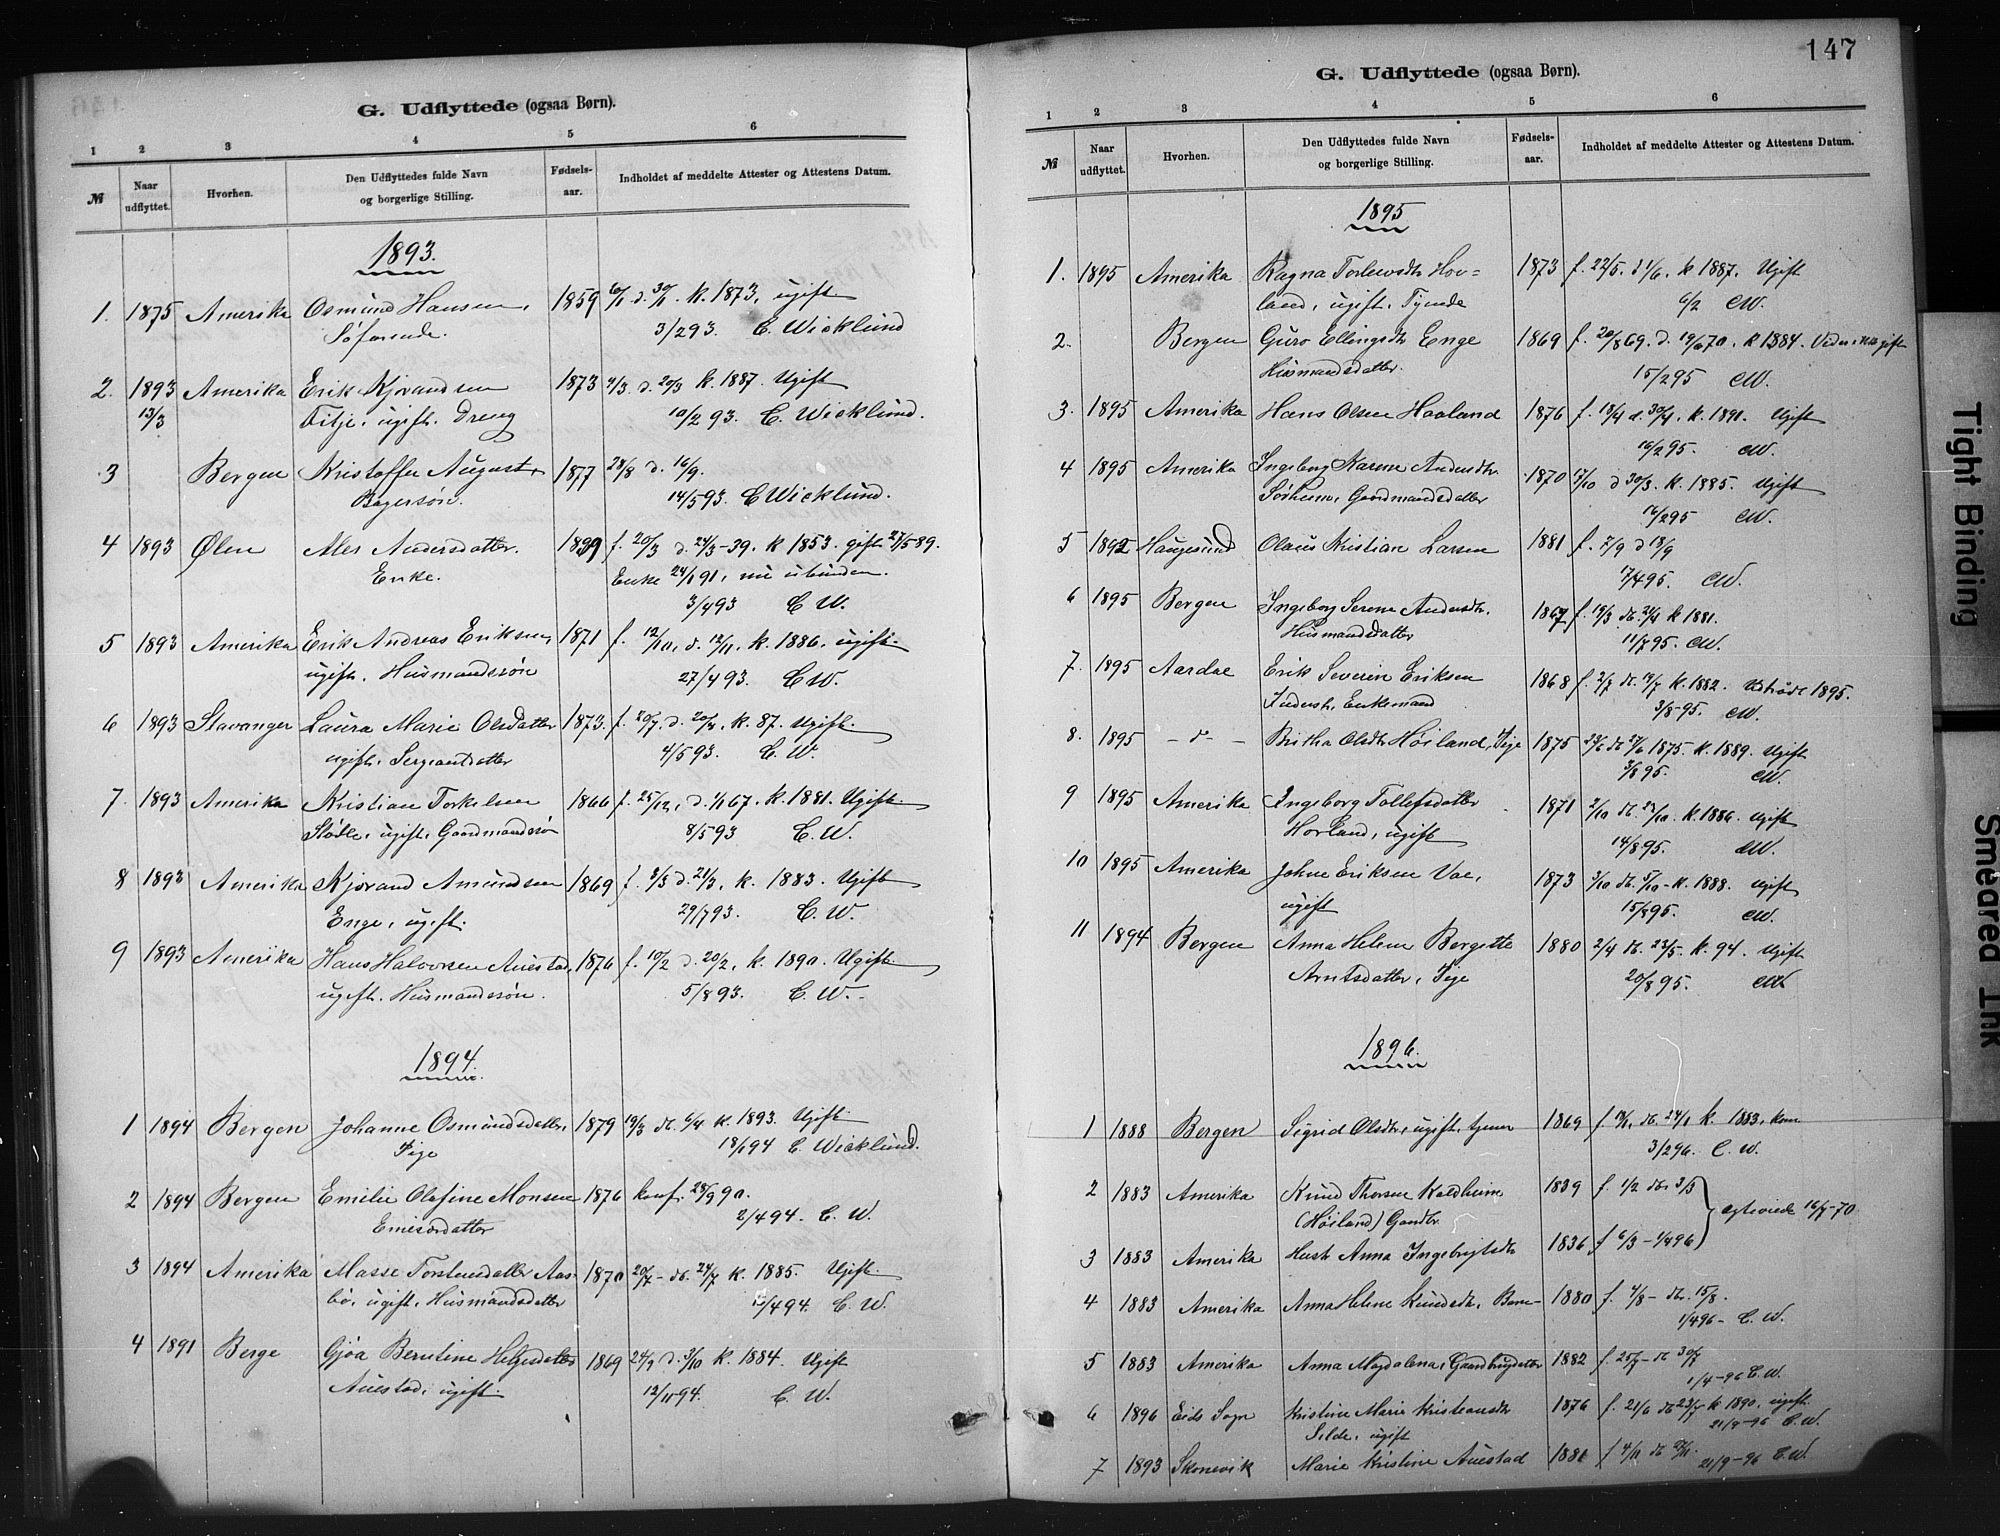 G. Udflyttede (ogsaa Børn).
1 2 3 4 5 6
№ Naar udflyttet. Hvorhen. Den Udflyttedes fulde Navn og borgerlige Stilling. Fødsels-aar. Indholdet af meddelte Attester og Attestens Datum.
1893.
1. 1875 Amerika Osmund Hansen, 1859 k. 1873, ugift.
Søfarende. 3/2 93. C. Wicklund
2. 1893 Amerika Erik Kjorandsen 1873 d. 20/3 k. 1887. Ugift
13/3 Fitje, ugift. Dreng 10/2 93. C. Wicklund.
3 Bergen Kristoffer August 1877 24/8 d. 16/9.
Bagersøn. 14/5 93. C Wicklund.
4 1893 Ølen Ales Andersdatter. f. 20/3 d. 24/3-39. k 1853. gift 25/5-89.
Enke. Enke 24/1 91, nu ubunden.
3/4 93 C W.
5 1893 Amerika Erik Andreas Eriksen, 1871 f. 12/10, d. 12/11. k. 1886. ugift.
ugift. Husmandssøn 27/4 93. C W.
6 1893 Stavanger Laura Marie Olsdatter 1873. f. 20/7. d. k. 87. Ugift.
ugift. Sergeantdatter 4/5 93. C. W.
7 1893 Amerika Kristian Torkelsen 1866 f. 25/12, d. 1/1 67. k. 1881. Ugift.
Støle, ugift. Gaardmandssøn 8/5 93 C. W.
8 1893 Amerika Kjorand Amundsen 1869 f. d. 21/3, k. 1883. Ugift
Enge, ugift. 29/7 93. C. W.
9 1893 Amerika Hans Halvorsen Auestad, 1876 f. 10/2 d. 20/2, k. 1890. Ugift.
ugift. Husmandssøn. 5/8 93. C. W.
1894.
1 1894 Bergen Johanne Osmundsdatter, 1879 19/3 db. 6/4 k. 1893. Ugift.
Pige 18/1 94 C. Wicklund.
2 1894 Bergen Emilie Olafine Monsen 1876 konf. 28/9 90.
2/4 94. C. W.
3 1894 Amerika Masse Torstensdatter Aas- 1870 20/7 - db. 24/7 k. 1885. Ugift.
bø, ugift. Husmandsdatter C. W.
4 1891 Berge Gjøa Berntine Helgesdatter 1869 24/9 d. 3/10 k. 1884. Ugift
Auestad, ugift. 12/11 94. C. W.
147
G. Udflyttede (ogsaa Børn).
1 2 3 4 5 6
№ Naar udflyttet. Hvorhen. Den Udflyttedes fulde Navn og borgerlige Stilling. Fødsels-aar. Indholdet af meddelte Attester og Attestens Datum.
1895
1. 1895 Amerika Ragna Torlewsdtr Hov= 1873 f. 22/5. k 1887. Ugift
land, ugift. Tyende 6/2 CW.
2. Bergen Guro Ellingsdtr Enge 1869 f. 20/8 69. d. k 1884. gift
Husmandsdatter. 15/2 95 CW.
3. 1895 Amerika Hans Olsen Haaland 1876 f. 18/4 d. 30/4. k. 1891. Ugift
16/2 95. CW.
4 1895 Amerika Ingeborg Karine Andersdtr 1870 17/10 d 30/3. k. 1885. Ugift
Sørheim, Gaardmandsdatter 16/2 95 CW.
5 1892 Haugesund Olaus Kristian Larsen 1881 f. 7/9 d 18/9
17/4 95. CW.
6 1895 Bergen Ingeborg Serene Andersdtr. 1867 f. 19/3 db. 21/4 k 1881.
Husmandsdatter 11/7 95. CW.
7. 1895 Aardal Erik Severin Eriksen 1868 f. 2/7 db. 19/7 k. 1882. 1895.
Enkemand 3/8-95. CW.
8. 1895 - d° - Britha Olsdtr Høiland, Pige 1875 db 27/6 1875. k. 1889. Ugift
3/8 95. CW.
9 1895 Amerika Ingeborg Tollefsdatter 1871 2/10 db. 22/10. k. 1886. ugift
Hovland, ugift 14/8 95. CW.
10 1895 Amerika Johne Eriksen Vae, 1873 3/10 db. 5/10 - k. 1888. ugift
ugift 15/8 95. CW.
11 1894 Bergen Anna Helene Bergitte 1880 2/4 db. 23/5. k. 94. Ugift
Arntsdatter, Pige 20/8 95. CW
1896.
1 1888 Bergen Sigrid Olsdtr, ugift, tjener 1869 f db. 24/1 k. 1883.
3/2 96. C. W.
2 1883 Amerika Knud Thorsen Koldheim 1839 f. 1/2 db. 3/3
(Høiland) Gaardbr. egteviede 16/7-70
3 1883 Amerika Hust. Anna Ingebrigtsdtr 1836 f 6/3 - 1/4 96
4 1883 Amerika Anna Helene Knudsdtr, Barn 1880 f. 4/8 - db. 15/8.
1/4 96 - C. W.
5 1883 Amerika Anna Magdalena, Gaardbrugdatter 1882 f. 25/7 - db 30/7
1/4-96 C. W.
6 1896 Eids Sogn Kristine Marie Kristensdtr 1876 f. 21/6 db 23/7 k 1890, ugift.
Silde, ugift C. W.
7 1893 Skonevik Marie Kristine Auestad f 4/11 db 21/9-96 C. W.
Tight Binding
Smeared Ink